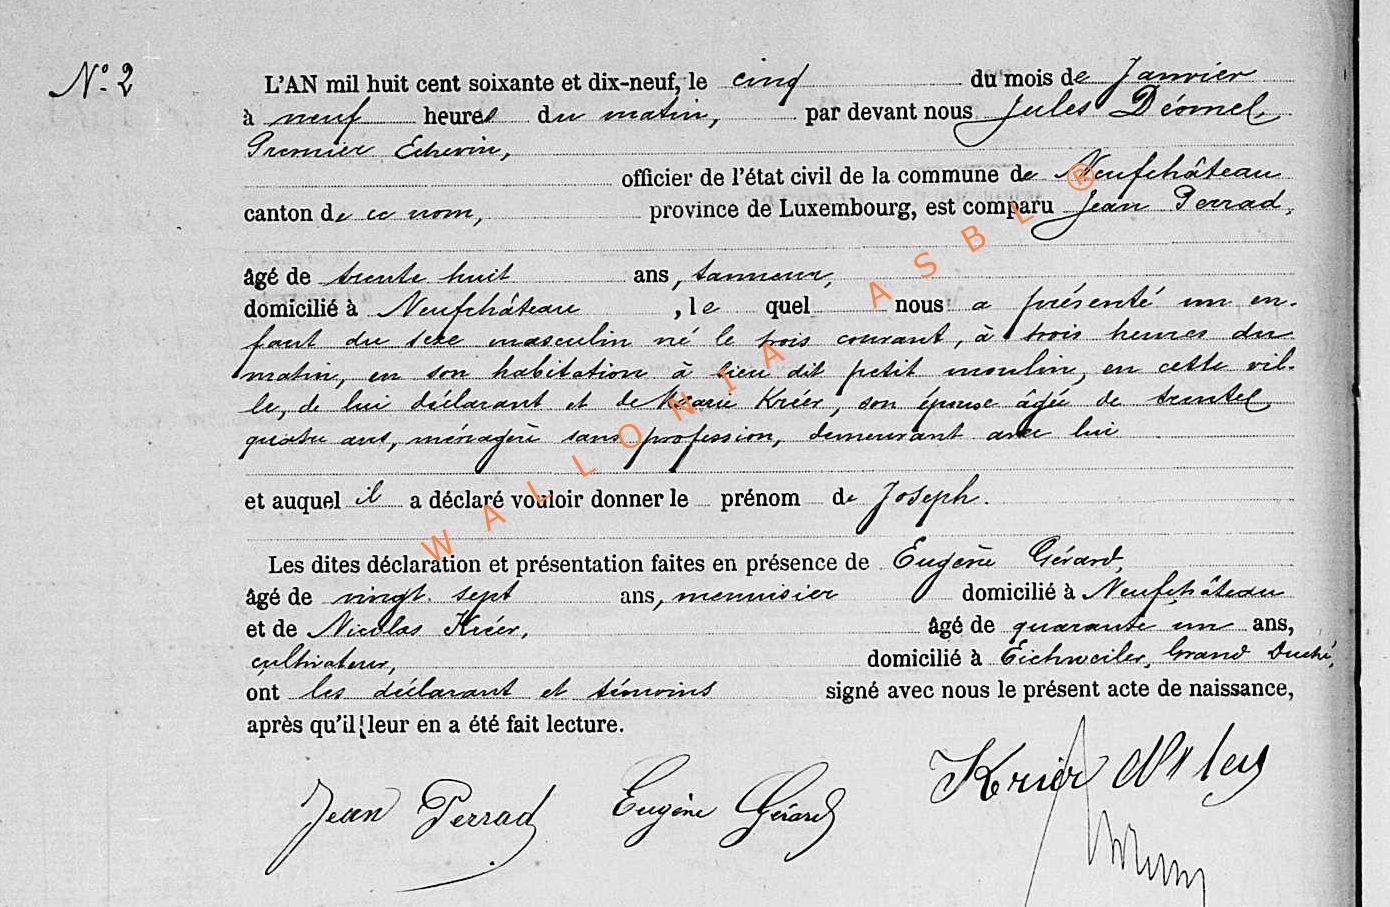 N° 2
L'AN mil huit cent soixante et dix-neuf, le cinq du mois de Janvier
à neuf heures du matin, par devant nous Jules
Premier Echevin,
officier de l'état civil de la commune de Neufchâteau
canton de ce nom, province de Luxembourg, est comparu Jean Perrad,
âgé de trente huit ans, tanneur,
domicilié à Neufchâteau, le quel nous a présenté un en-
fant du sexe masculin né le trois courant, à trois heures du
matin, en son habitation à lieu dit petit moulin, en cette vil-
le, de lui déclarant et de Marie Kriér, son épouse âgée de trente
quatre ans, ménagère sans profession, demeurant avec lui
et auquel il a déclaré vouloir donner le prénom de Joseph.
Les dites déclaration et présentation faites en présence de Eugène Gérard,
âgé de vingt-sept ans, menuisier domicilié à Neufchâteau
et de Nicolas Kriér, âgé de quarante un ans,
cultivateur, domicilié à Eichweiler, Grand Duché,
ont les déclarant et témoins signé avec nous le présent acte de naissance,
après qu'il leur en a été fait lecture.
Jean Perrad Eugène Gérard Krier
WALLONIA ASBL ®